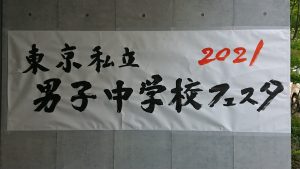 東京私立 2021
男子中学校フェスタ